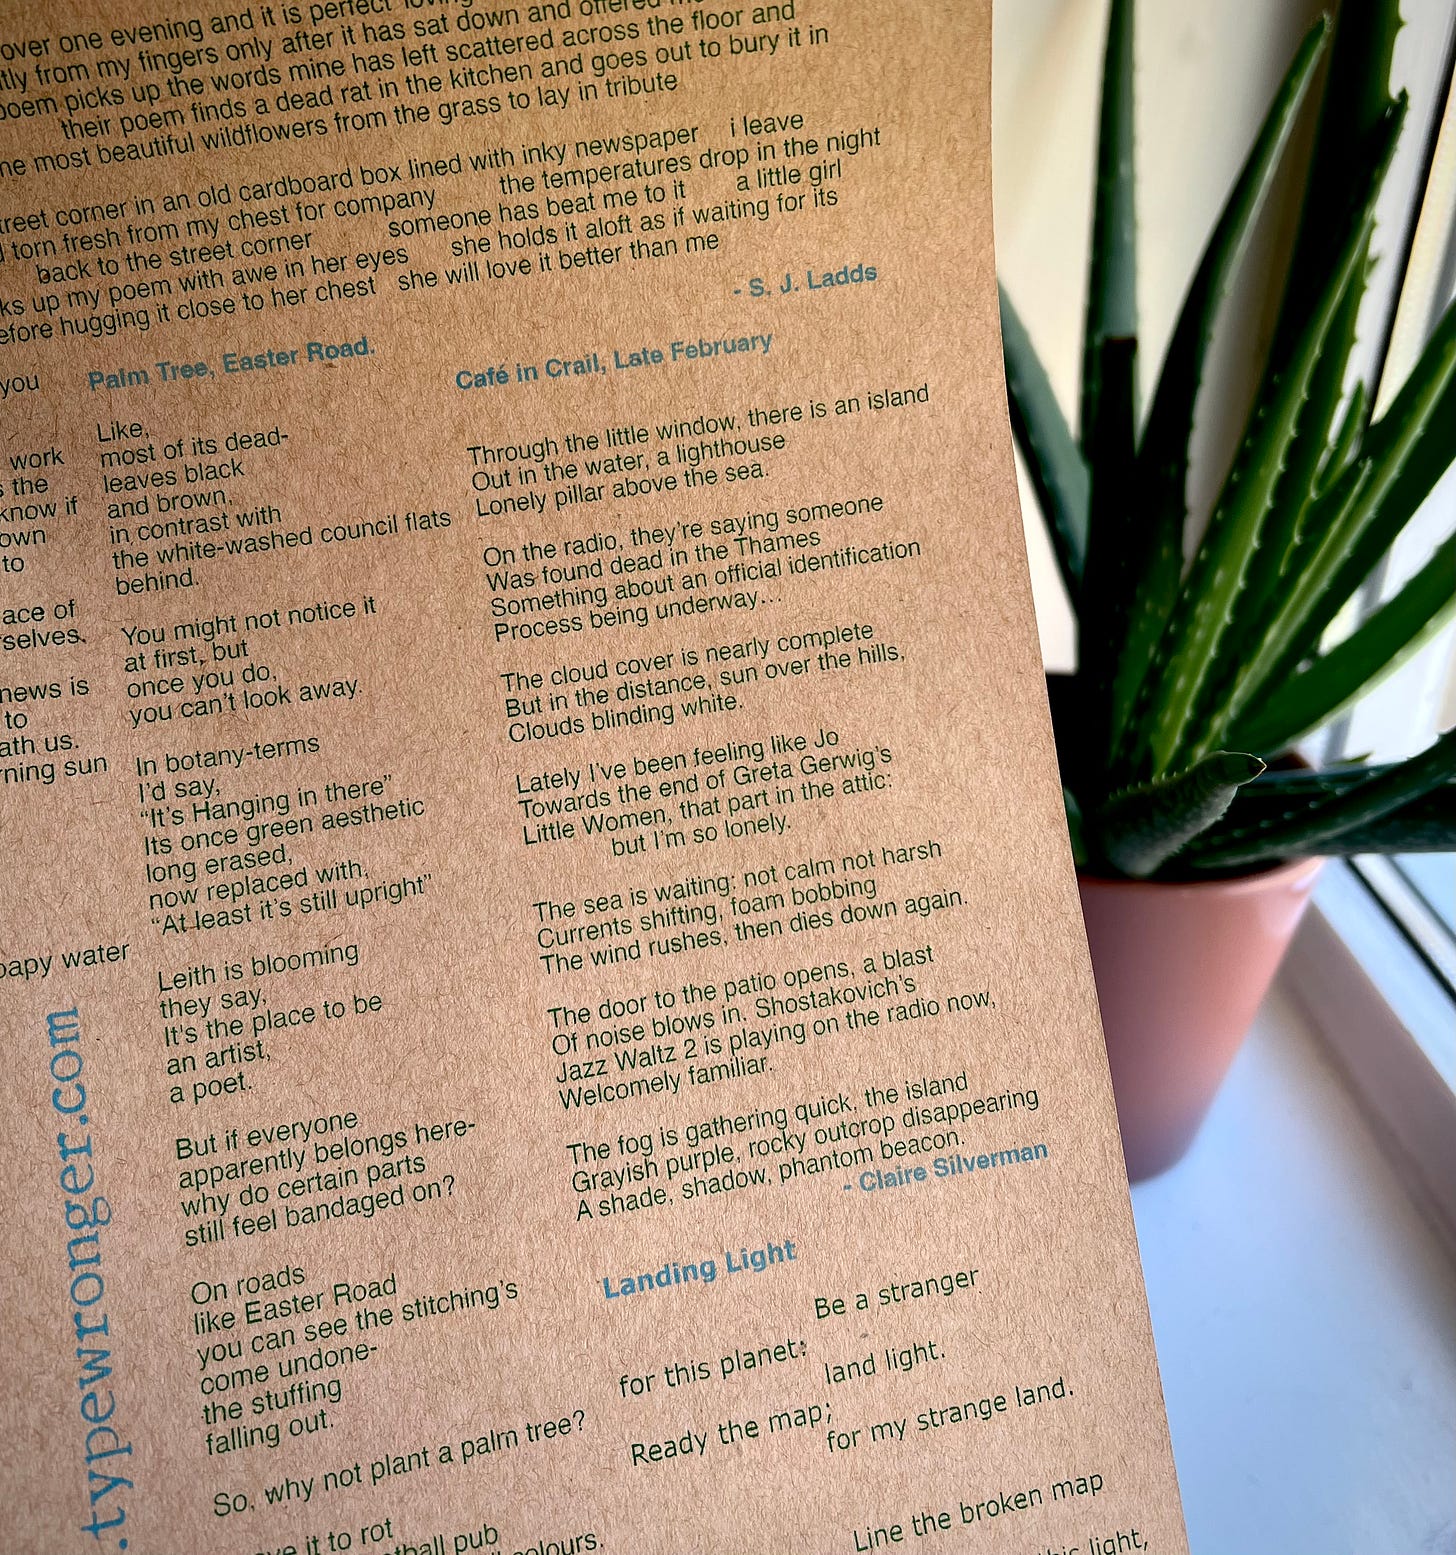 over one evening and it is perfect
from my fingers only after it has sat down and offered
poem picks up the words mine has left scattered across the floor and
their poem finds a dead rat in the kitchen and goes out to bury it in
most beautiful wildflowers from the grass to lay in tribute
corner in an old cardboard box lined with inky newspaper i leave
torn fresh from my chest for company the temperatures drop in the night
back to the street corner someone has beat me to it a little girl
up my poem with awe in her eyes she holds it aloft as if waiting for its
hugging it close to her chest she will love it better than me
- S. J. Ladds
you
work
the
know if
own
to
ace of
selves.
news is
to
ath us.
ning sun
oapy water
.typewronger.com
Palm Tree, Easter Road.
Like,
most of its dead-
leaves black
and brown,
in contrast with
the white-washed council flats
behind.
You might not notice it
at first, but
once you do,
you can't look away.
In botany-terms
I'd say,
"It's Hanging in there"
Its once green aesthetic
long erased,
now replaced with,
"At least it's still upright"
Leith is blooming
they say,
It's the place to be
an artist,
a poet.
But if everyone
apparently belongs here-
why do certain parts
still feel bandaged on?
On roads
like Easter Road
you can see the stitching's
come undone-
the stuffing
falling out.
So, why not plant a palm tree?
it to rot
pub
Café in Crail, Late February
Through the little window, there is an island
Out in the water, a lighthouse
Lonely pillar above the sea.
On the radio, they're saying someone
Was found dead in the Thames
Something about an official identification
Process being underway...
The cloud cover is nearly complete
But in the distance, sun over the hills,
Clouds blinding white.
Lately I've been feeling like Jo
Towards the end of Greta Gerwig's
Little Women, that part in the attic:
but I'm so lonely.
The sea is waiting: not calm not harsh
Currents shifting, foam bobbing
The wind rushes, then dies down again.
The door to the patio opens, a blast
Of noise blows in. Shostakovich's
Jazz Waltz 2 is playing on the radio now,
Welcomely familiar.
The fog is gathering quick, the island
Grayish purple, rocky outcrop disappearing
A shade, shadow, phantom beacon.
- Claire Silverman
Landing Light
Be a stranger
for this planet:
land light.
Ready the map;
for my strange land.
Line the broken map
light,